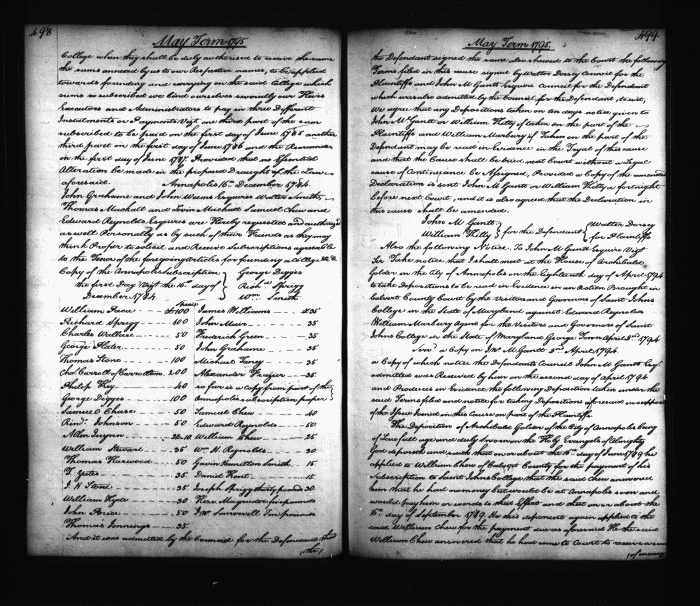 498
May Term 1795
College when they shall be duly authorised to receive the same
the sums annexed by us to our Respective names, to be applied
towards founding and carrying on the said College which
sums so subscribed we bind ourselves severally our Heirs
Executors and Administrators to pay in three Different
Instalments or Payments Vizt one third part of the sum
subscribed to be paid on the first day of June 1785 another
third part on the first day of June 1786 and the Remainder
on the first day of June 1787. Provided that no Essential
Alteration be made in the proposed Draught of the Law
aforesaid. Annapolis 16th December 1784
John Grahame and John Weems Esquires Walter Smith,
Thomas Mackall and Levin Mackall Samuel Chew and
Edward Reynolds Esquires are Hereby requested and authorized
as well Personally as by such of their Friends as they may
think Proper to solicit and Receive Subscriptions agreeable
to the Tenor of the foregoing articles for founding a College &c &c
Copy of the Annapolis subscription George Digges
the first Day Vizt the 15th day of Richd Sprigg
December 1784 Wm Smith
William Paca £100 James Williams £35
Richard Sprigg 100 John Muir 35
Charles Wallace 50 Frederick Green 35
George Plater 50 John Grahame 35
Thomas Stone 100 Michael Taney 35
Chas Carroll of Carrollton 200 Alexander Frazier 35
Philip Key 40 so far is a copy from part of the
George Digges 100 Annapolis subscription paper
Samuel Chase 50 Samuel Chew 40
Johnson 50 Edward Reynolds 50
Allen Quynn 22.10 William Chew 25
William Steward 35 Wm H. Reynolds 30
Thomas Harwood 50 Gavin Hamilton Smith 15
T. Yates 35 David Kent 15
J H Stone 35 Joseph Sprigg thirty pounds 30
William Hyde 30 Heze Magruder
John Price 50 Jno Somervell Ten pounds
Thomas Jennings 35
And it was admitted by the Council for the Defendant that
(the)
499
May Term 1795.
the Defendant signed the same also shewed to the Court the following
Terms filed in this cause signed by Walter Dorsey Council for the
Plaintiffs and John M Gantt Esquire Council for the Defendant
which were also admitted by the Council for the Defendant, to wit,
we agree that any Depositions taken on ten days notice given to
John M Gantt or William Kilty, if taken on the part of the
Plaintiffs and William Marbury if Taken on the part of the
Defendant may be read in Evidence in the Tryal of this cause
and that the Cause shall be tried next Court without a Legal
cause of Continuance be Assigned, Provided a Copy of the amended
Declaration is sent John M Gantt or William Kilty a fortnight
before next Court, and it is also agreed that the Declaration in
this cause shall be amended.
John M Gantt Walter Dorsey
William Kilty for the Defendant for Plaintiffs
Also the following Notice. To John M Gantt Esquire Vizt
Sir Take notice that I shall meet at the House of Archibald
Golder in the City of Annapolis on the Eighteenth day of April 1794
to take Depositions to be read in Evidence in an Action Brought in
Calvert County Court by the Visitors and Governors of Saint Johns
College in the State of Maryland against Edward Reynolds
William Marbury Agent for the Visitors and Governors of Saint
Johns College in the State of Maryland George Town April 2nd 1794
a Copy on Jno M Gantt 2nd April 1794.
a Copy of which notice the Defendants Council John M Gantt Esqr
admitted was Received by him on the second day of April 1794
and Produces in Evidence the following Deposition taken under the
said Terms filed and notice for taking Depositions aforesaid in support
of the Issue Joined in this Cause on part of the Plaintiffs.
The Deposition of Archibald Golder of the City of Annapolis being
of Lawfull age and duly Sworn on the Holy Evangels of Almighty
God deposeth and saith that on or about the 15th day of June 1789 he
applied to William Chew of Calvert County for the payment of his
Subscription to Saint Johns College that the said Chew answered
him that he had no money but would be at Annapolis soon and
would pay him or words to that Effect and that on or about the
15th day of September 1789 he this deponent again applied to the
said William Chew for the payment due as aforesaid He the said
William Chew answered that he had come to Court to receive a sum
(of money)